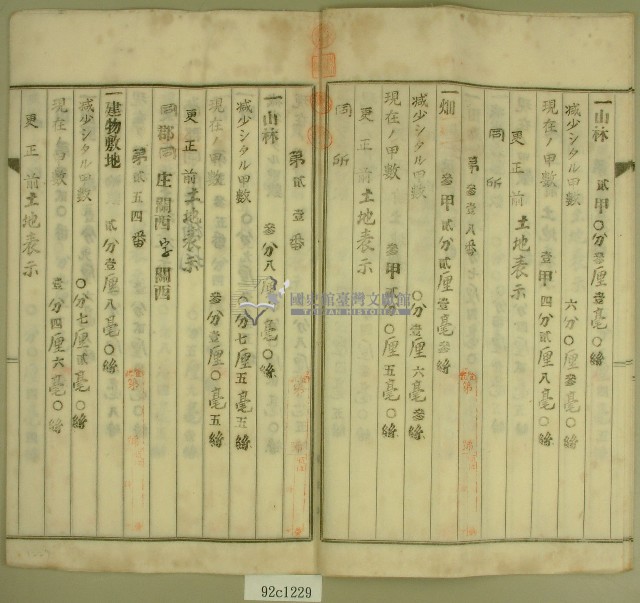 一山林 貳甲〇分參厘參毫〇絲
減少シタル甲數 六分〇厘參毫〇絲
現在ノ甲數 壹甲四分貳厘八毫〇絲
更正前土地表示
同所
第參壹八番
一畑 參甲貳分貳厘壹毫參絲
減少シタル甲數 〇分壹厘六毫參絲
現在ノ甲數 參甲貳分〇厘五毫〇絲
更正前土地表示
同所
第貳壹番
一山林 參分八厘〇毫〇絲
減少シタル甲數 〇分七厘五毫五絲
現在ノ甲數 參分壹厘〇毫五絲
更正前土地表示
同郡同庄關西字關西
第貳五四番
一建物敷地 貳分壹厘八毫〇絲
減少シタル甲數 〇分七厘貳毫〇絲
現在ノ甲數 壹分四厘六毫〇絲
更正前土地表示
國史館臺灣文獻館
TAIWAN HISTORICA
92c1229